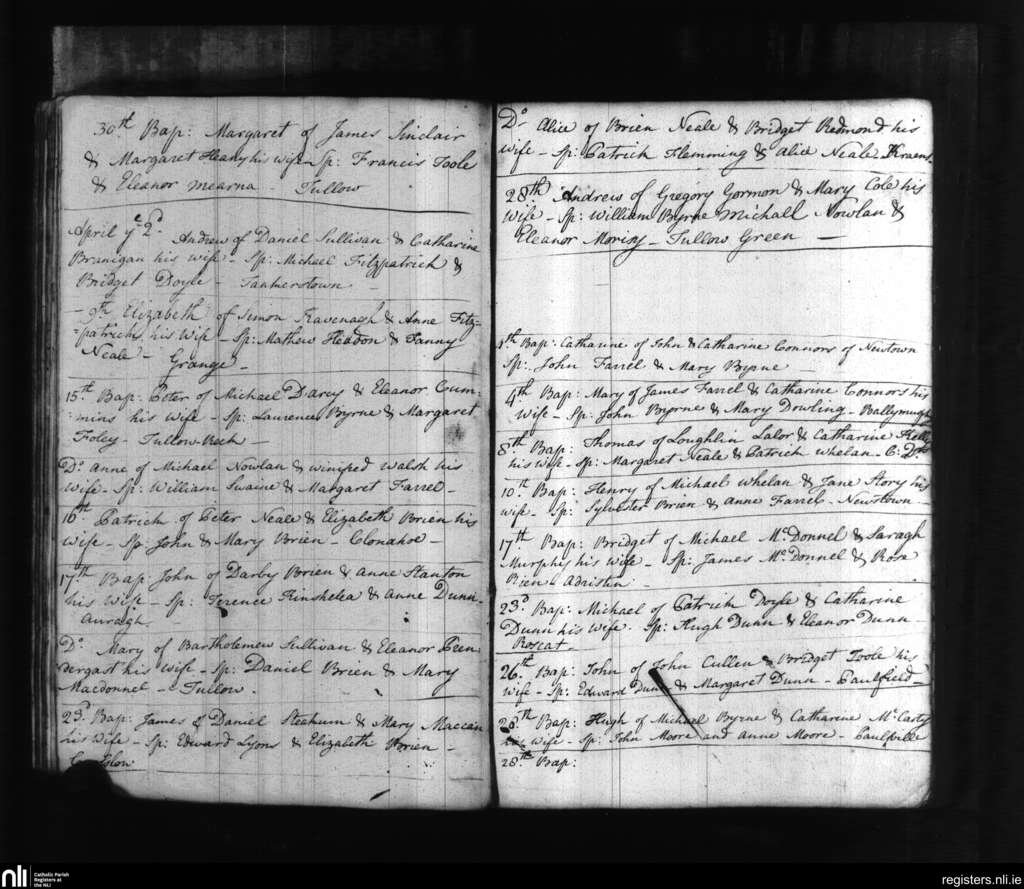 30th Bap: Margaret of James Sinclair
& Margaret Heany his wife - Sp: Francis Toole
& Eleanor Mearna - Tullow
April ye 2d. Andrew of Daniel Sullivan & Catharine
Branigan his wife - Sp: Michael Fitzpatrick &
Bridget Doyle - Tankerstown -
- 9th Elizabeth of Simon Kavenagh & Anne Fitz=
=patrick his Wife - Sp: Mathew Headon & Fanny
Neale - Grange -
15th Bap: Peter of Michael Darcy & Eleanor Cum-
mins his Wife - Sp: Laurence Byrne & Margaret
Foley - Tullow
Do. Anne of Michael Nowlan & Winifred Walsh his
Wife - Sp: William Swaine & Margaret Farrel -
16th Patrick of Peter Neale & Elizabeth Brien his
Wife - Sp John & Mary Brien - Clonahoe -
17th Bap John of Darby Brien & Anne Stanton
his Wife - Sp: Terence Kinshelea & Anne Dunn-
Do. Mary of Bartholemew Sullivan & Eleanor Pren
dergast his Wife - Sp: Daniel Brien & Mary
Macdonnel - Tullow.
23d Bap: James of Daniel & Mary
his Wife - Sp: Edward Lyons & Elizabeth Brien -
Do. Alice of Brien Neale & Bridget Redmond his
Wife - Sp: Patrick Flemming & Alice Neale
28th Andrew of Gregory Gormon & Mary Cole his
Wife - Sp: William Byrne Michall Nowlan &
Eleanor Morisy - Tullow Green -
1th Bap: Catharine of John & Catharine Connors of Newtown
Sp: John Farrel & Mary Byrne -
4th Bap: Mary of James Farrel & Catharine Connors his
Wife - Sp: John Byrne & Mary Dowling - Ballymurphy
8th Bap: Thomas of Loughlin Lalor & Catharine Kelly
his Wife - Sp: Margaret Neale & Patrick Whelan -
10th Bap: Henry of Michael Whelan & Jane Story his
wife - Sp: Sylvester Brien & Anne Farrel - Newtown -
17th Bap: Bridget of Michael McDonnel & Saragh
Murphy his Wife - Sp: James McDonnel & Rose
Bien - Adristin
23d Bap: Michael of Patrick Doyle & Catharine
Dunn his Wife. Sp: Hugh Dunn & Eleanor Dunn
Roscat -
26th Bap: John of John Cullen & Bridget Toole his
Wife - Sp: Edward Dunn & Margaret Dunn - Paulfield -
28th Bap: Hugh of Michael Byrne & Catharine McCarty
his Wife - Sp: John Moore and Anne Moore - Paulville
28th Bap:
nli Catholic Parish
Registers at
the NLI
registers.nli.ie